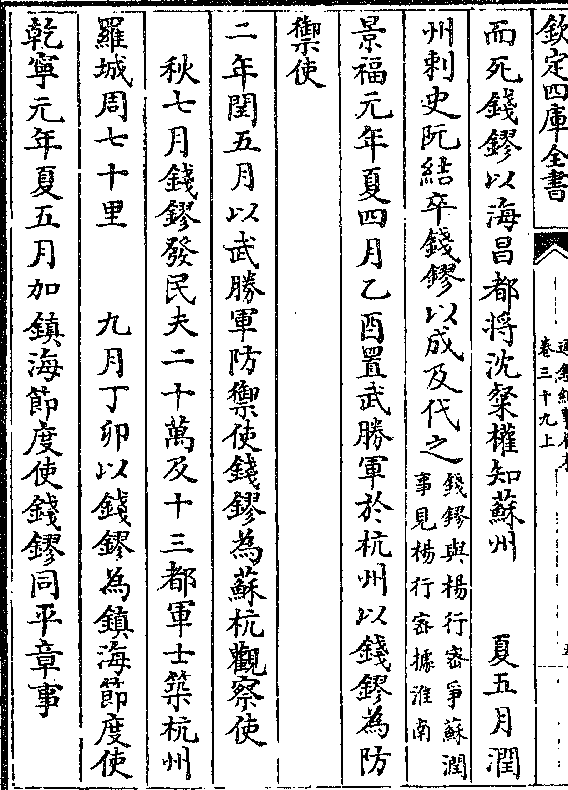 欽定四庫全書
卷三十九上
而死錢鏐以海昌都將沈粲權知蘇州　　夏五月潤
州刺史阮結卒錢鏐以成及代之錢鏐與楊行密爭蘇潤
事見楊行密據淮南
景福元年夏四月乙酉置武勝軍於杭州以錢鏐為防
禦使
二年閏五月以武勝軍防禦使錢鏐為蘇杭觀察使
秋七月錢鏐發民夫二十萬及十三都軍士築杭州
羅城周七十里　　九月丁卯以錢鏐為鎮海節度使
乾寧元年夏五月加鎮海節度使錢鏐同平章事